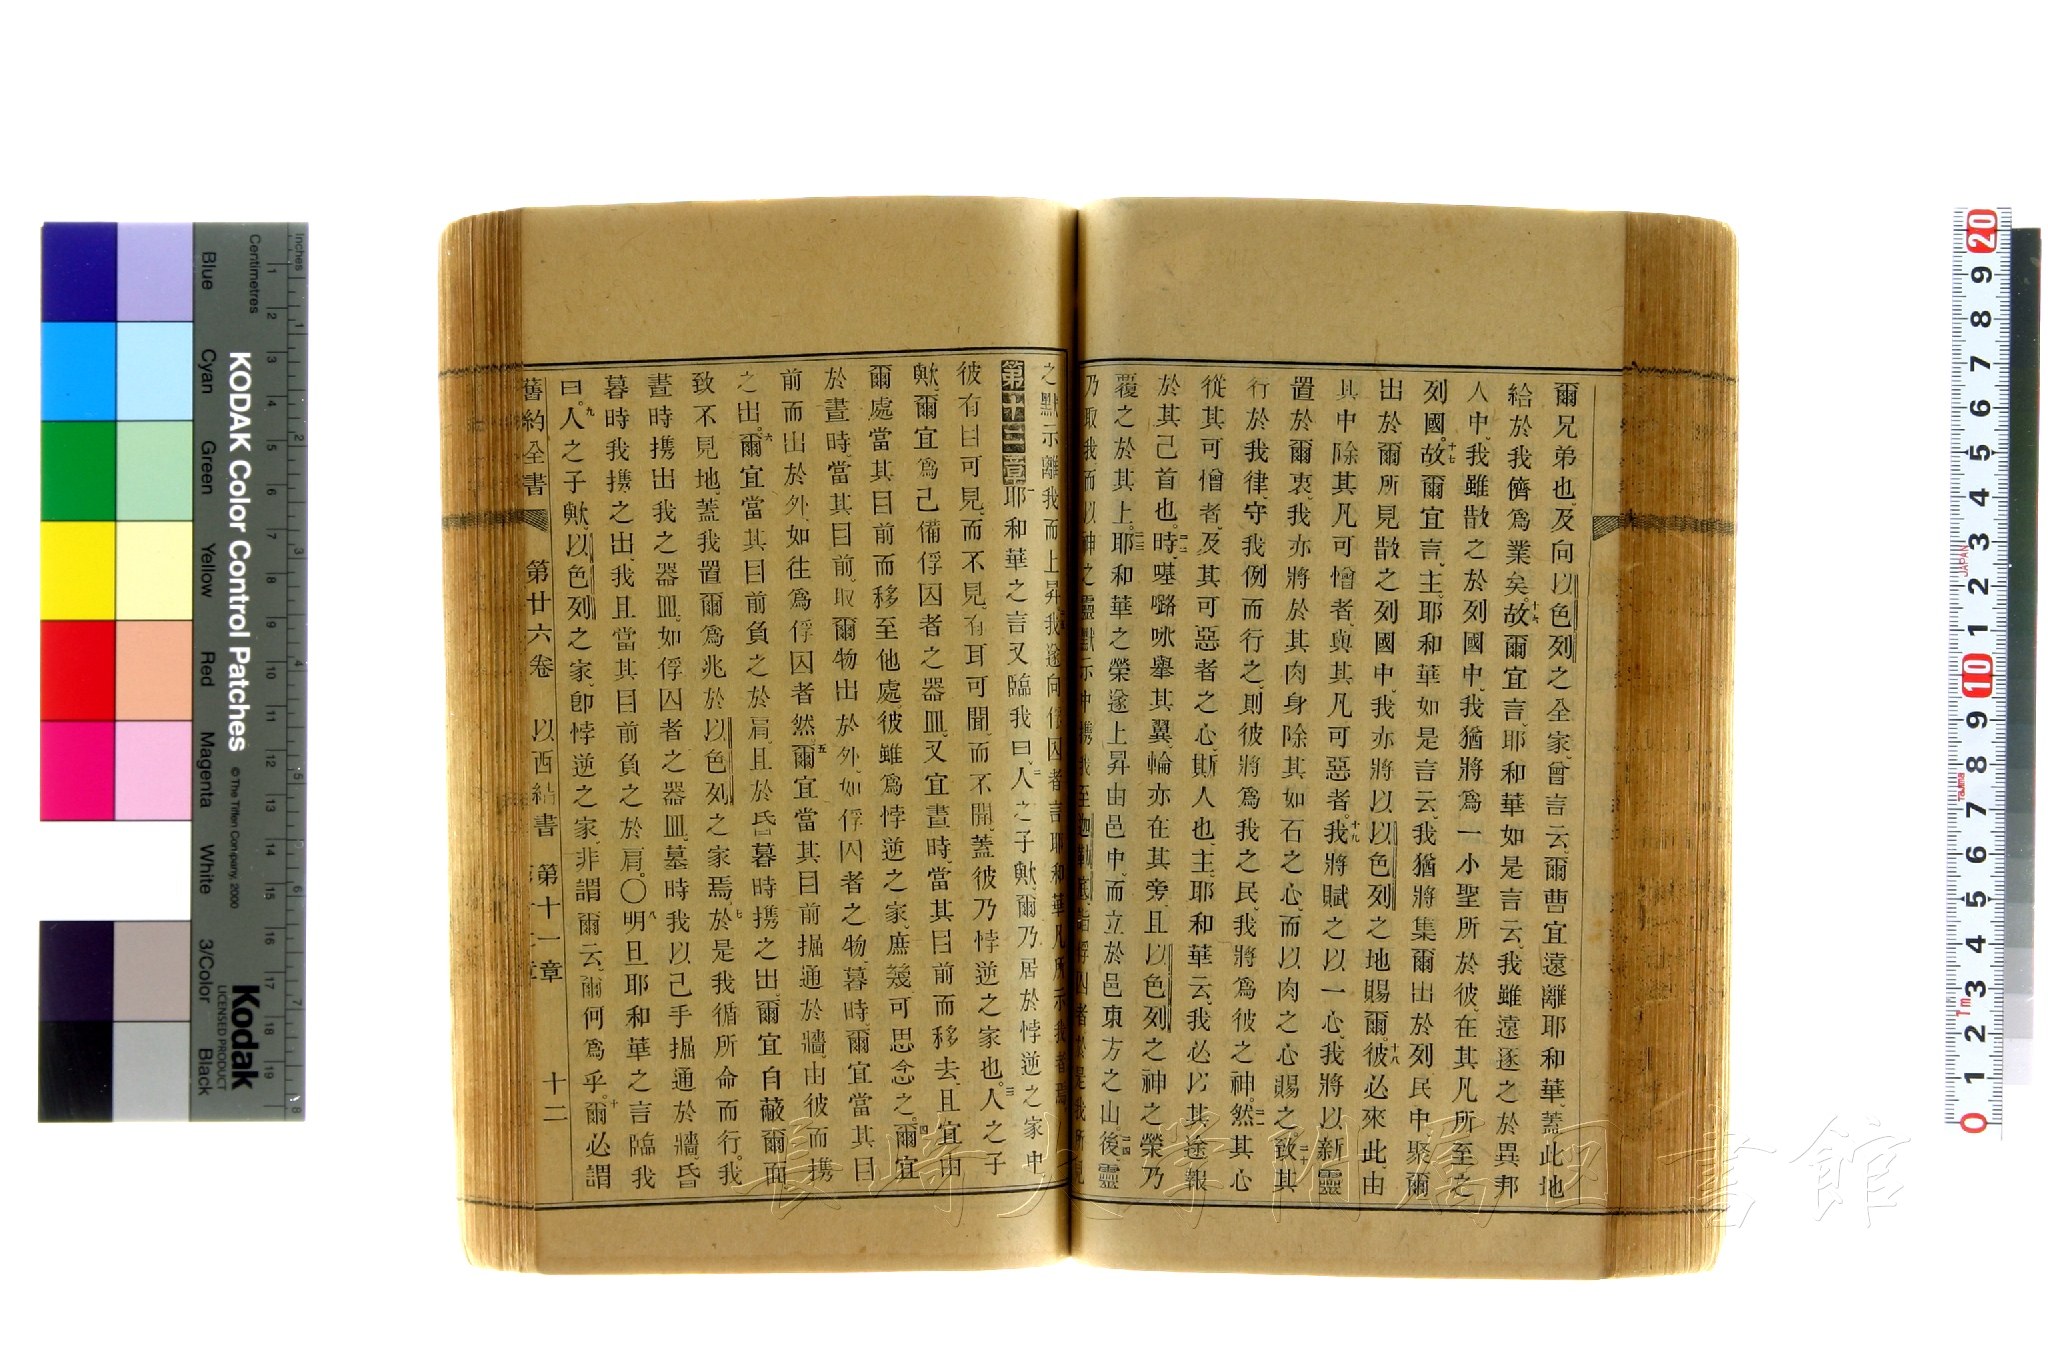 爾兄弟也、及向以色列之全家、曾言云、爾曹宜遠離耶和華、蓋此地
給於我儕爲業矣。十六故爾宜言、耶和華如是言云、我雖遠逐之於異邦
人中、我雖散之於列國中、我猶將爲一小聖所於彼、在其凡所至之
列國。十七故爾宜言、主耶和華如是言云、我猶將集爾出於列民中、聚爾
出於爾所見散之列國中、我亦將以以色列之地賜爾。十八彼必來此、由
其中除其凡可憎者、與其凡可惡者。十九我將賦之以一心、我將以新靈
置於爾衷、我亦將於其肉身除其如石之心、而以肉之心賜之、二十致其
行於我律、守我例而行之、則彼將爲我之民、我將爲彼之神。二一然其心
從其可憎者、及其可惡者之心、斯人也、主耶和華云、我必以其途報
於其己首也。二二時𠼻㘔咏舉其翼、輪亦在其旁、且以色列之神之榮乃
覆之於其上。二三耶和華之榮遂上昇由邑中、而立於邑東方之山。二四後靈
乃取我、而以神之靈默示中攜我至迦勒底、詣俘囚者、於是我所見
之默示離我而上昇、二五我遂向俘囚者言耶和華凡所示我者焉。
第十二章 一耶和華之言又臨我曰、二人之子歟、爾乃居於悖逆之家中
彼有目可見、而不見、有耳可聞、而不聞、蓋彼乃悖逆之家也。三人之子
歟、爾宜爲己備俘囚者之器皿、又宜晝時、當其目前而移去、且宜由
爾處當其目前而移至他處、彼雖爲悖逆之家、庶幾可思念之。四爾宜
於晝時、當其目前、取爾物出於外、如俘囚者之物、暮時、爾宜當其目
前而出於外、如往爲俘囚者然、五爾宜當其目前掘通於牆、由彼而攜
之出。六爾宜當其目前負之於肩、且於昏暮時攜之出、爾宜自蔽爾面
致不見地、蓋我置爾爲兆於以色列之家焉、七於是我循所命而行、我
晝時攜出我之器皿、如俘囚者之器皿、暮時我以己手掘通於牆、昏
暮時我攜之出、我且當其目前負之於肩。〇八明旦耶和華之言臨我
曰、九人之子歟、以色列之家、卽悖逆之家、非謂爾云、爾何爲乎。十爾必謂
舊約全書 第廿六卷 以西結書 第十一章 十二
長崎大学附属図書館
KODAK Color Control Patches
© The Tiffen Company, 2000
Kodak
LICENSED PRODUCT
Inches
Centimetres
Blue
Cyan
Green
Yellow
Red
Magenta
White
3/Color
Black